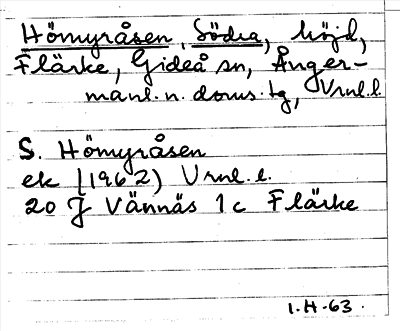 Hömyråsen, Södra, höjd,
Flärke, Gideå sn, Ånger-
manl. n. doms. tg, Vrnl. l.
S. Hömyråsen
ek (1962) Vrnl. l.
20 J Vännäs 1c Flärke
1.H.63.